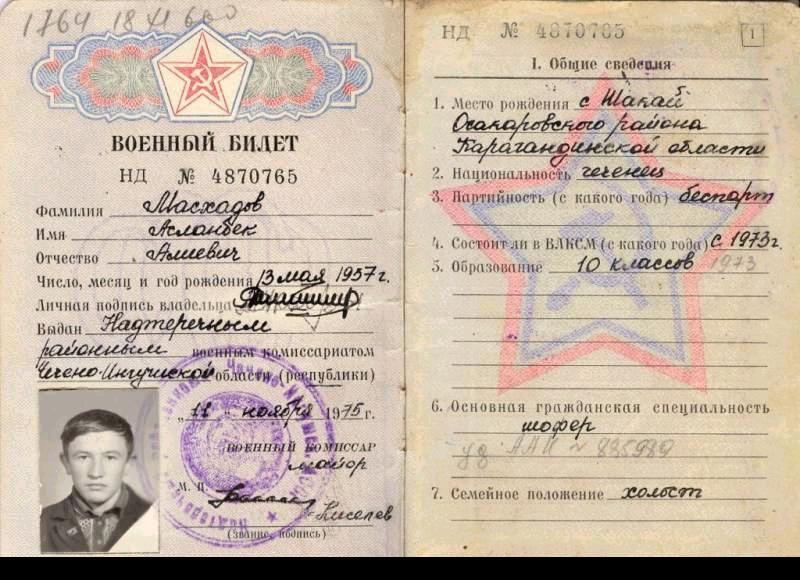 1764 1841 600
ВОЕННЫЙ БИЛЕТ
НД № 4870765
Фамилия Масхадов
Имя Асланбек
Отчество Алиевич
Число, месяц и год рождения 13 мая 1957 г.
Личная подпись владельца
Выдан Надтеречным
районным военным комиссариатом
Чечено-Ингушской области (республики)
"11" ноября 1975 г.
ВОЕННЫЙ КОМИССАР
майор
М. П.
Киселев
(звание, подпись)
НД № 4870765
1
I. Общие сведения
1. Место рождения с Шакай
Осакаровского района
Карагандинской области
2. Национальность чеченец
3. Партийность (с какого года) беспарт
4. Состоит ли в ВЛКСМ (с какого года) с 1973г.
5. Образование 10 классов 1973
6. Основная гражданская специальность
шофер
уд ААП № 835989
7. Семейное положение холост